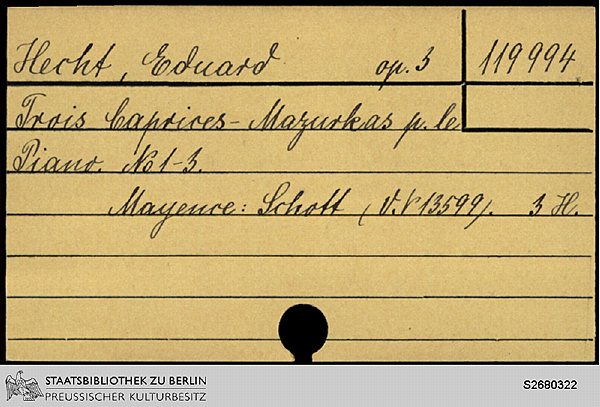 Hecht, Eduard op. 3 119994
Trois Caprices-Mazurkas p. le
Piano. No 1-3.
Mayence: Schott (V.N 13599). 3 H.
STAATSBIBLIOTHEK ZU BERLIN
PREUSSISCHER KULTURBESITZ
S2680322